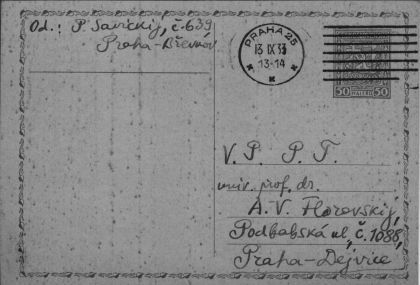 Od.: P. Savickij, č. 639
Praha-Břevnov
PRAHA 25
13 IX 33
13-14
K
50 HALÉŘŮ 50
V. P. P. T.
univ. prof. dr.
A. V. Florovskij,
Podbabská ul., č. 1088,
Praha-Dejvice